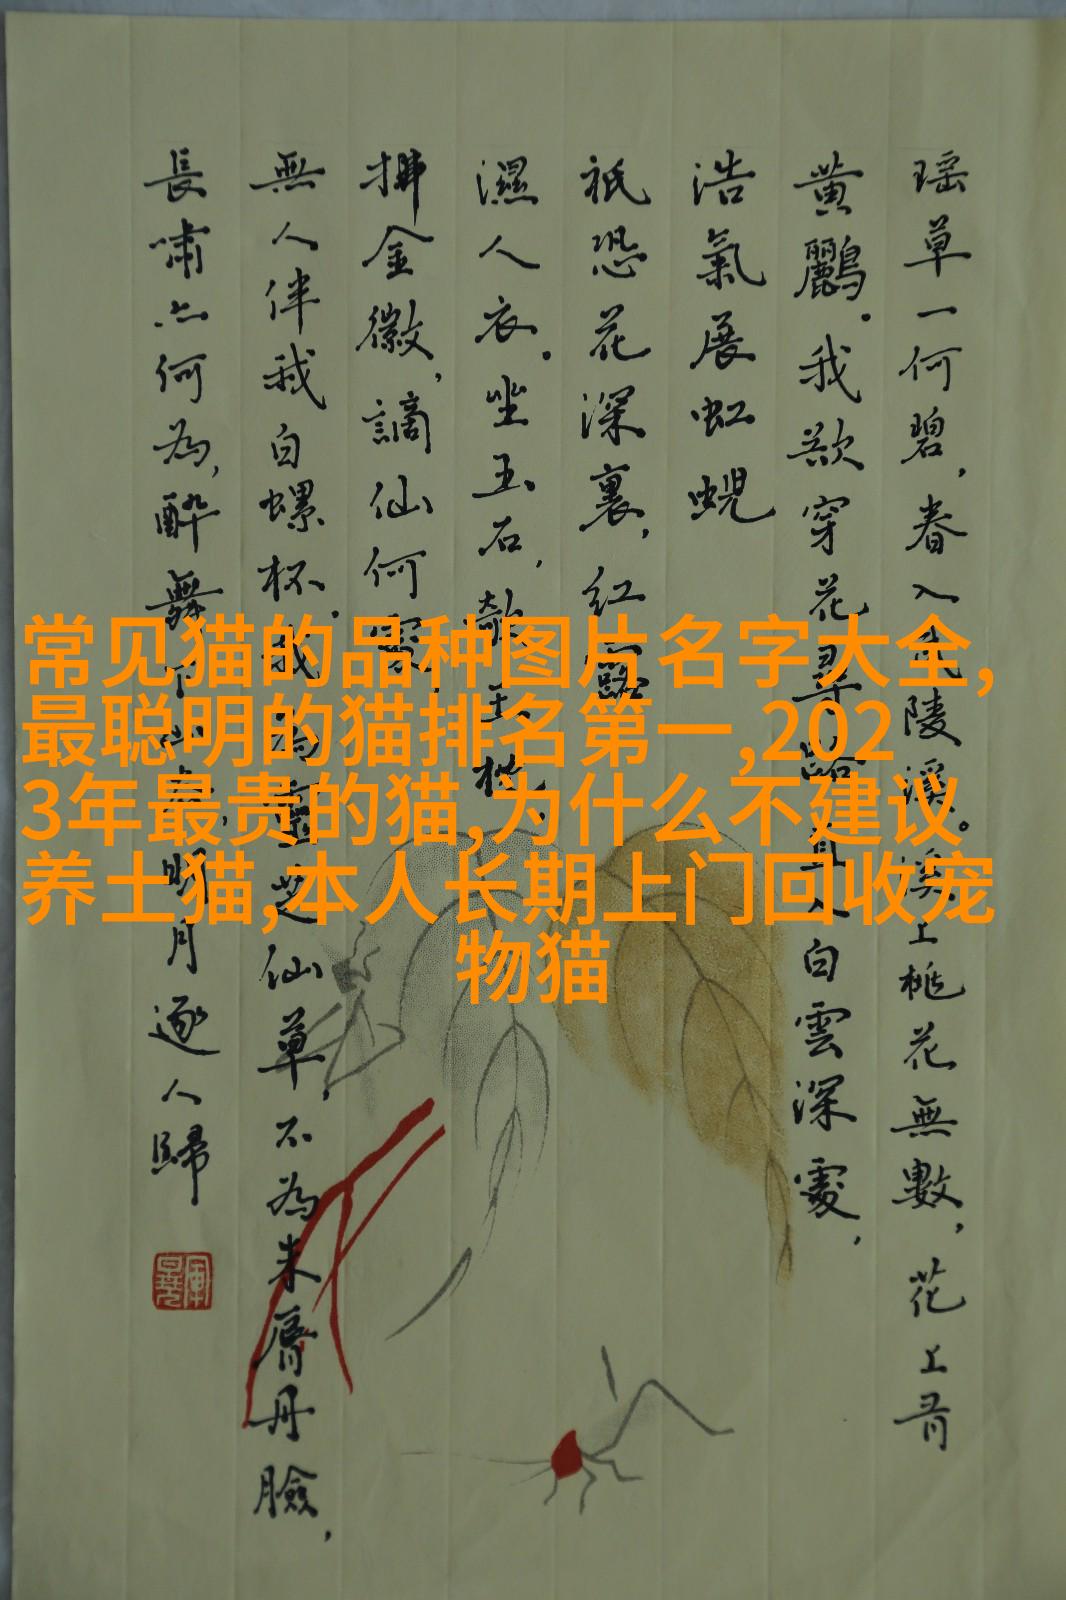 瑶草一何碧,春入武陵溪。溪上桃花無數,花上有
黄鸝。我欲穿花尋路,直入白雲深處,
浩氣展虹蜺
祇恐花深裏,紅露
濕人衣。坐玉石,欹玉枕,
拂金徽,謫仙何處,
無人伴我白螺杯。我為靈芝仙草,不為朱脣丹臉,
長嘯亦何為,醉舞下山去,明月逐人歸
常见猫的品种图片名字大全,
最聪明的猫排名第一,202
3年最贵的猫,为什么不建议
养土猫,本人长期上门回收宠
物猫